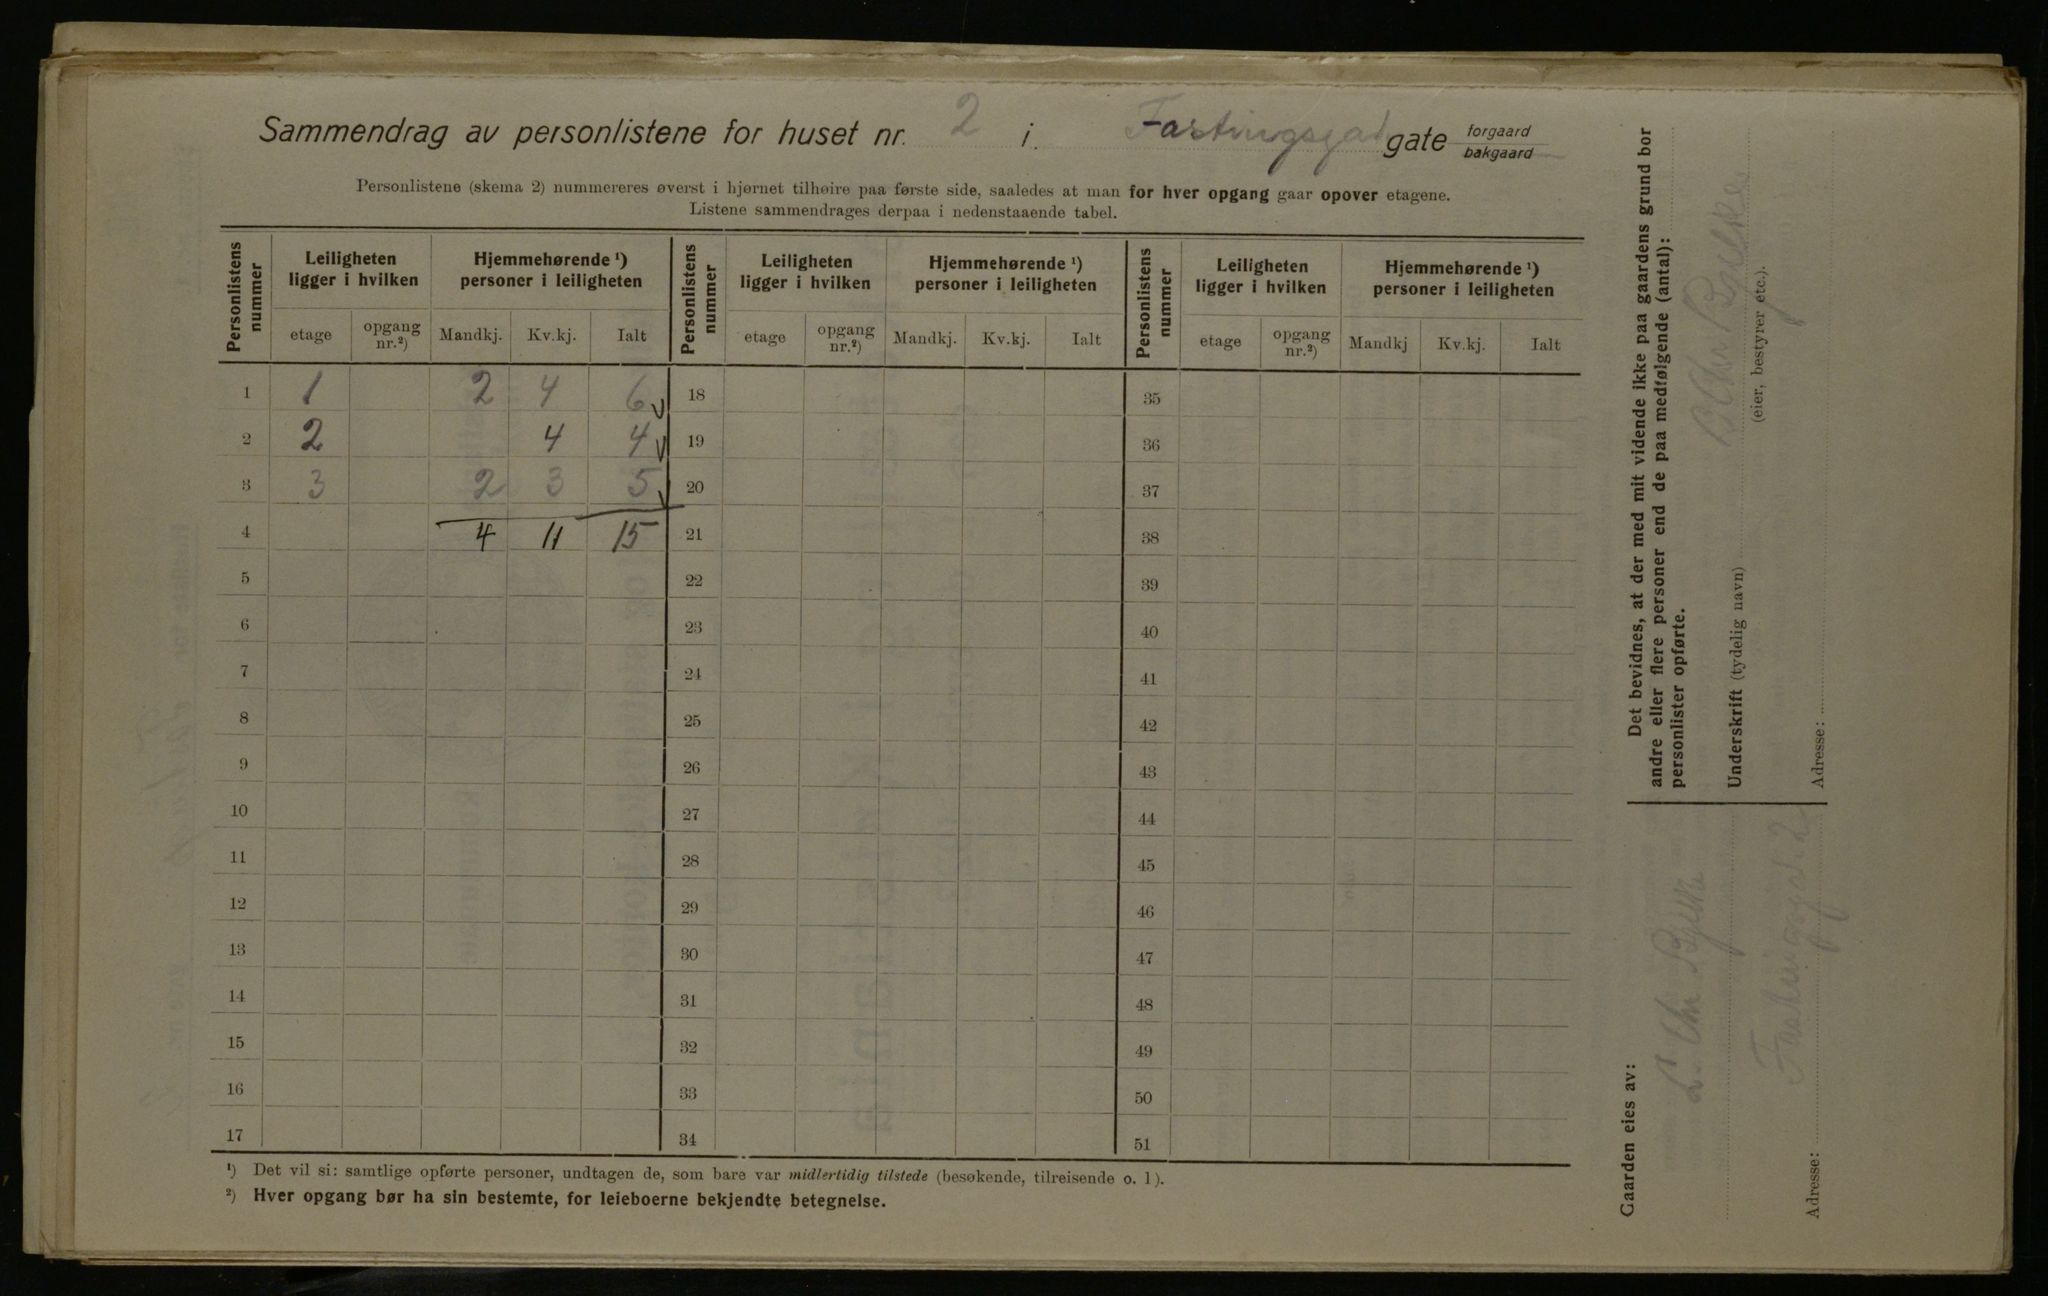 Sammendrag av personlistene for huset nr. 2 i Fastingsgad gate forgaard bakgaard
Personlistene (skema 2) nummereres øverst i hjørnet tilhøire paa første side, saaledes at man for hver opgang gaar opover etagene.
Listene sammendrages derpaa i nedenstaaende tabel.
Personlistens nummer Leiligheten ligger i hvilken Hjemmehørende ¹) personer i leiligheten Personlistens nummer Leiligheten ligger i hvilken Hjemmehørende ¹) personer i leiligheten Personlistens nummer Leiligheten ligger i hvilken Hjemmehørende ¹) personer i leiligheten
etage opgang nr.²) Mandkj. Kv.kj. Ialt etage opgang nr.²) Mandkj. Kv.kj. Ialt etage opgang nr.²) Mandkj Kv.kj. Ialt
1 1 2 4 6 18 35
2 2 4 4 19 36
3 3 2 3 5 20 37
4 4 11 15 21 38
5 22 39
6 23 40
7 24 41
8 25 42
9 26 43
10 27 44
11 28 45
12 29 46
13 30 47
14 31 48
15 32 49
16 33 50
17 34 51
¹) Det vil si: samtlige opførte personer, undtagen de, som bare var midlertidig tilstede (besøkende, tilreisende o. l).
²) Hver opgang bør ha sin bestemte, for leieboerne bekjendte betegnelse.
Det bevidnes, at der med mit vidende ikke paa gaardens grund bor
andre eller flere personer end de paa medfølgende (antal):
personlister opførte.
Underskrift (tydelig navn)
(eier, bestyrer etc.).
Adresse:
Gaarden eies av:
Chr
Adresse: Fastingsgd. 2